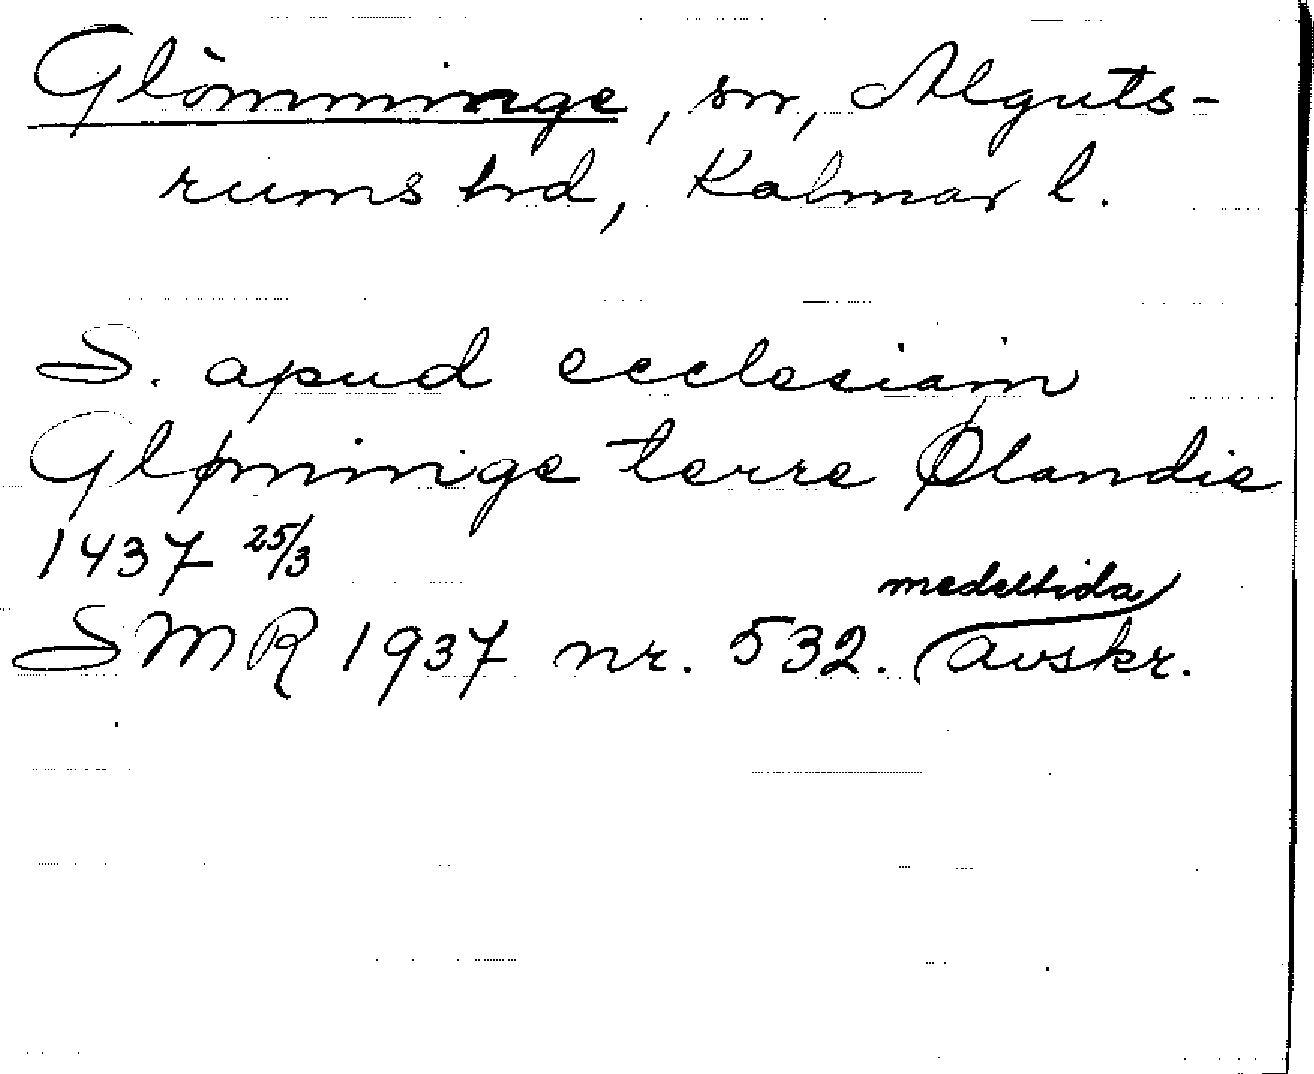 Glömminge, sn, Alguts-
rums hrd, Kalmar l.
S. apud ecclesiam
Glømmige terre Ølandie
1437 25/3
SMR 1937 nr. 532. medeltida avskr.